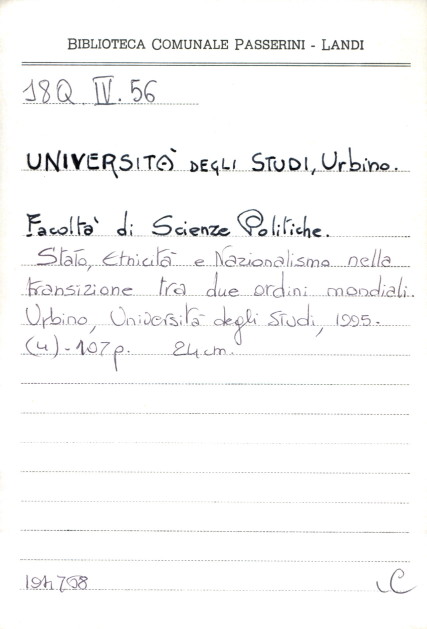 BIBLIOTECA COMUNALE PASSERINI - LANDI
18Q IV. 56
UNIVERSITÀ DEGLI STUDI, Urbino.
Facoltà di Scienze Politiche.
Stato, Etnicità e Nazionalismo nella
transizione tra due ordini mondiali.
Urbino, Università degli Studi, 1995.
(4)-107 p. 24 cm.
194768
C